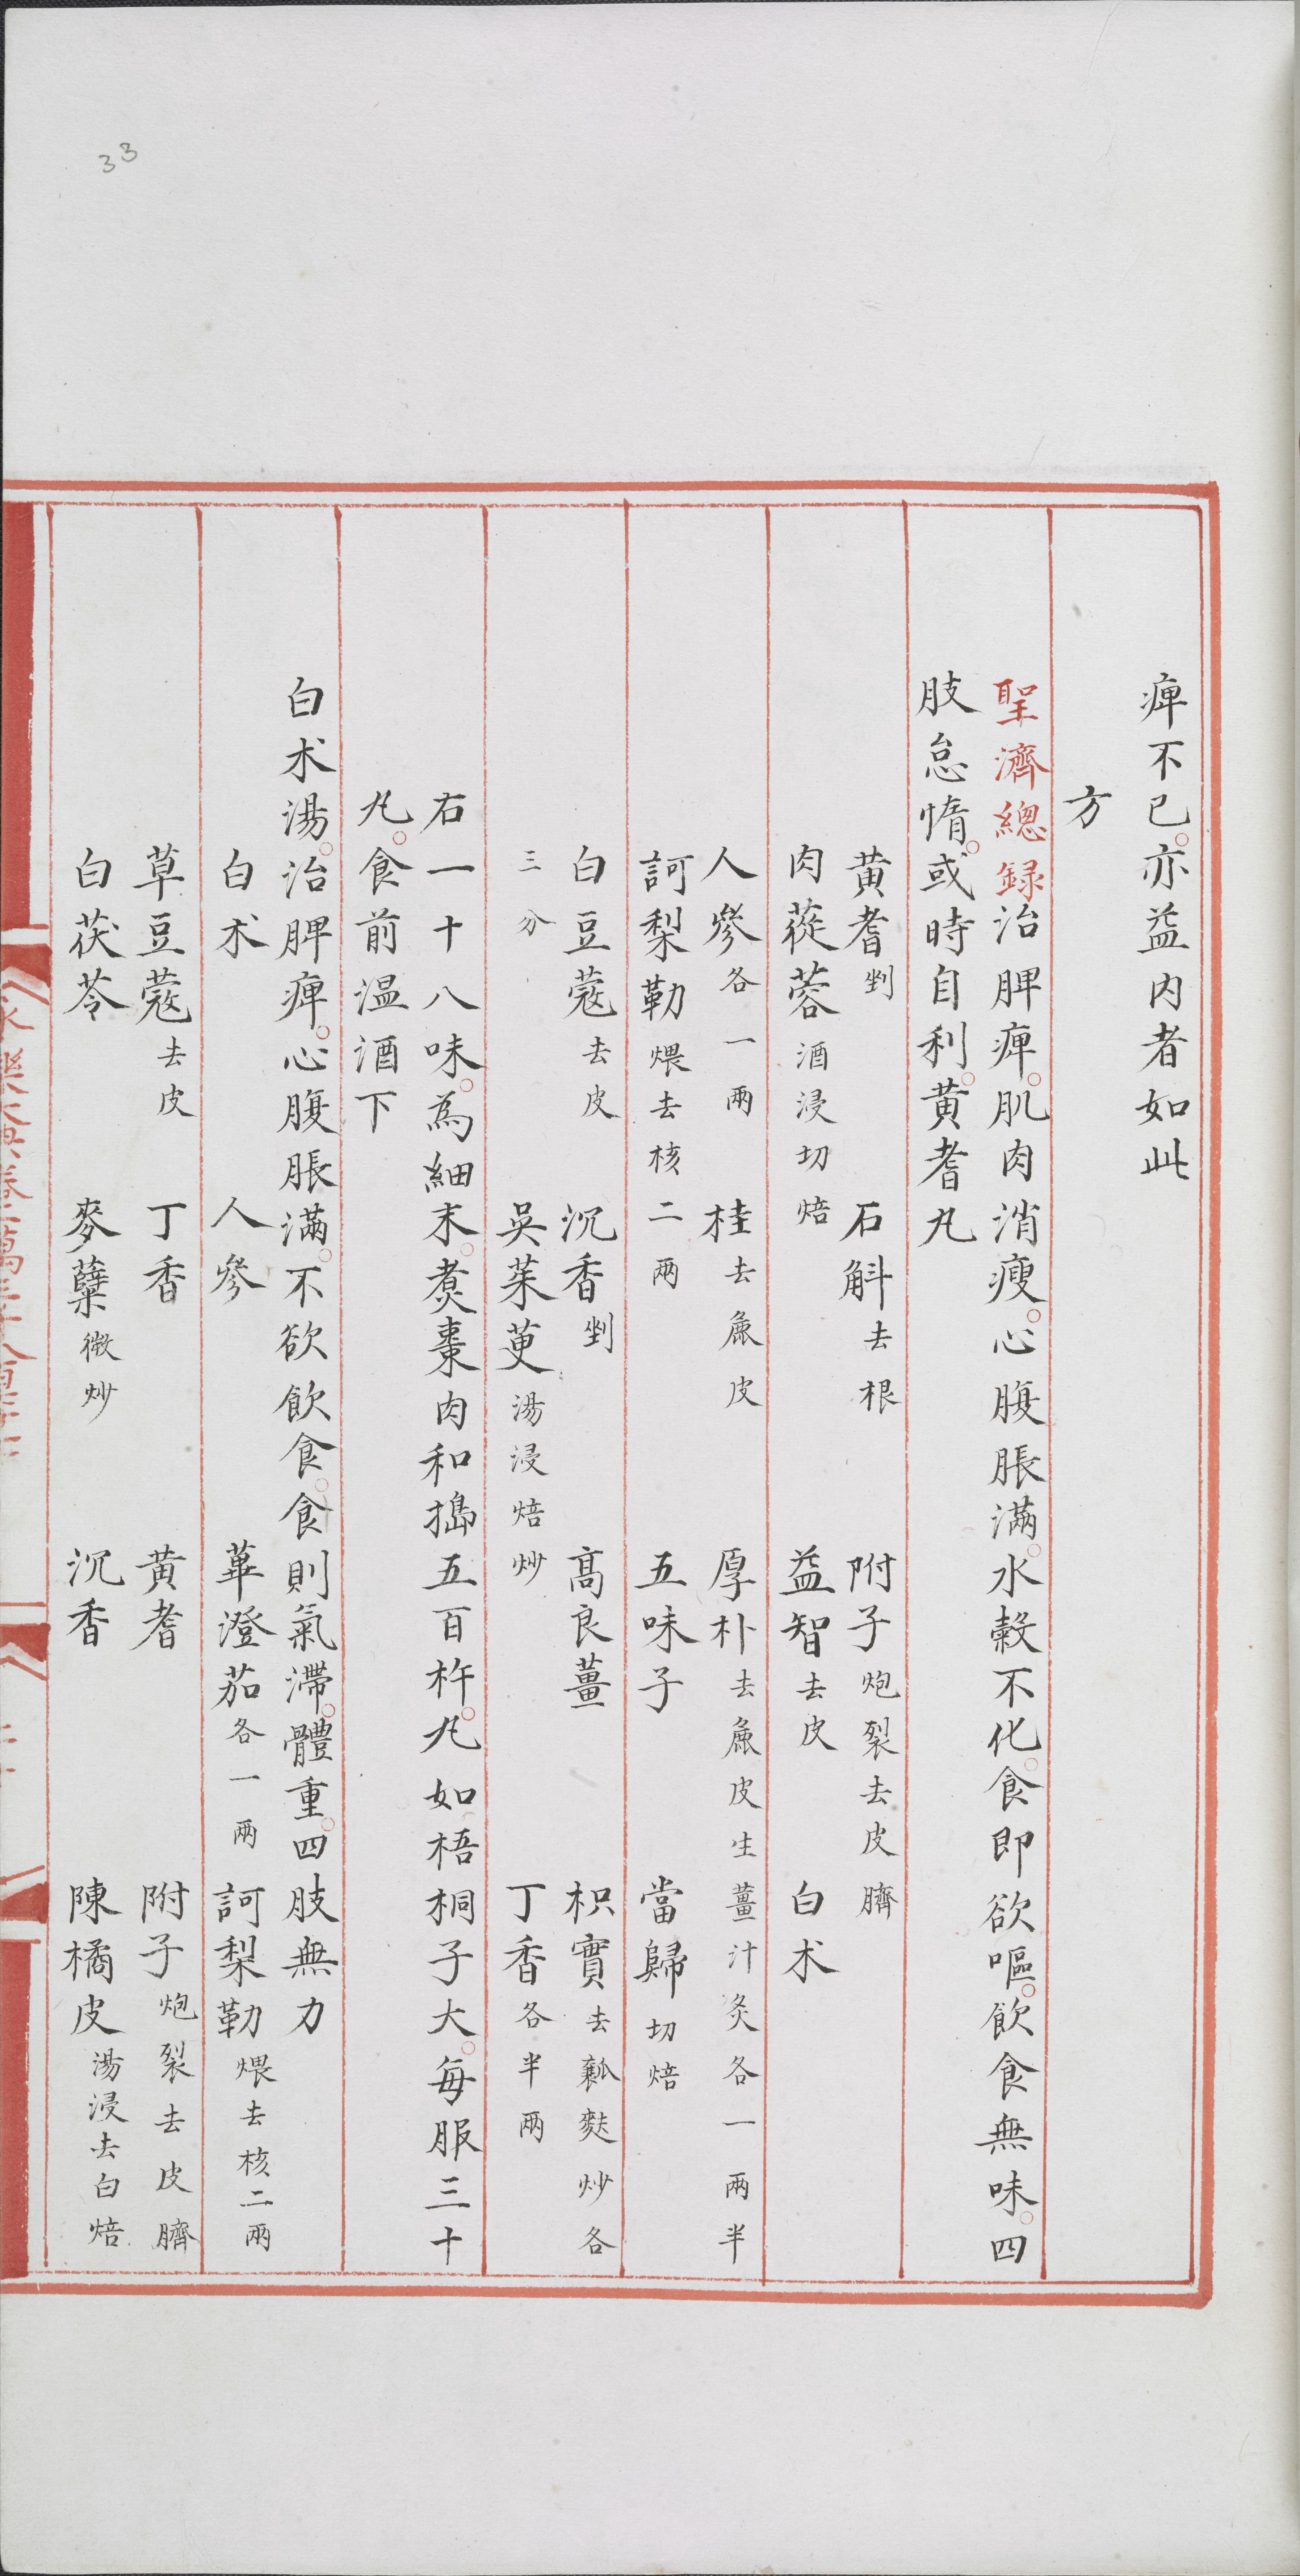 33
痺不已。亦益内者如此
方
聖濟總録治脾痺。肌肉消瘦。心腹脹滿。水榖不化。食即欲嘔。飲食無味。四
肢怠惰。或時自利。黄耆丸
黄耆剉 石斛去根 附子炮裂去皮臍
肉蓯蓉酒浸切焙 益智去皮 白朮
人參各一兩 桂去麄皮 厚朴去麄皮生薑汁炙各一兩半
訶梨勒煨去核二兩 五味子 當歸切焙
白豆蔻去皮 沉香剉 高良薑 枳實去瓤麩炒各
三分 吳茱萸湯浸焙炒 丁香各半兩
右一十八味。為細末。煑棗肉和搗五百杵。丸如梧桐子大。每服三十
丸。食前温酒下
白朮湯。治脾痺。心腹脹滿。不欲飲食。食則氣滯。體重。四肢無力
白朮 人參 蓽澄茄各一兩 訶梨勒煨去核二兩
草豆蔻去皮 丁香 黄耆 附子炮裂去皮臍
白茯苓 麥蘖微炒 沉香 陳橘皮湯浸去白焙